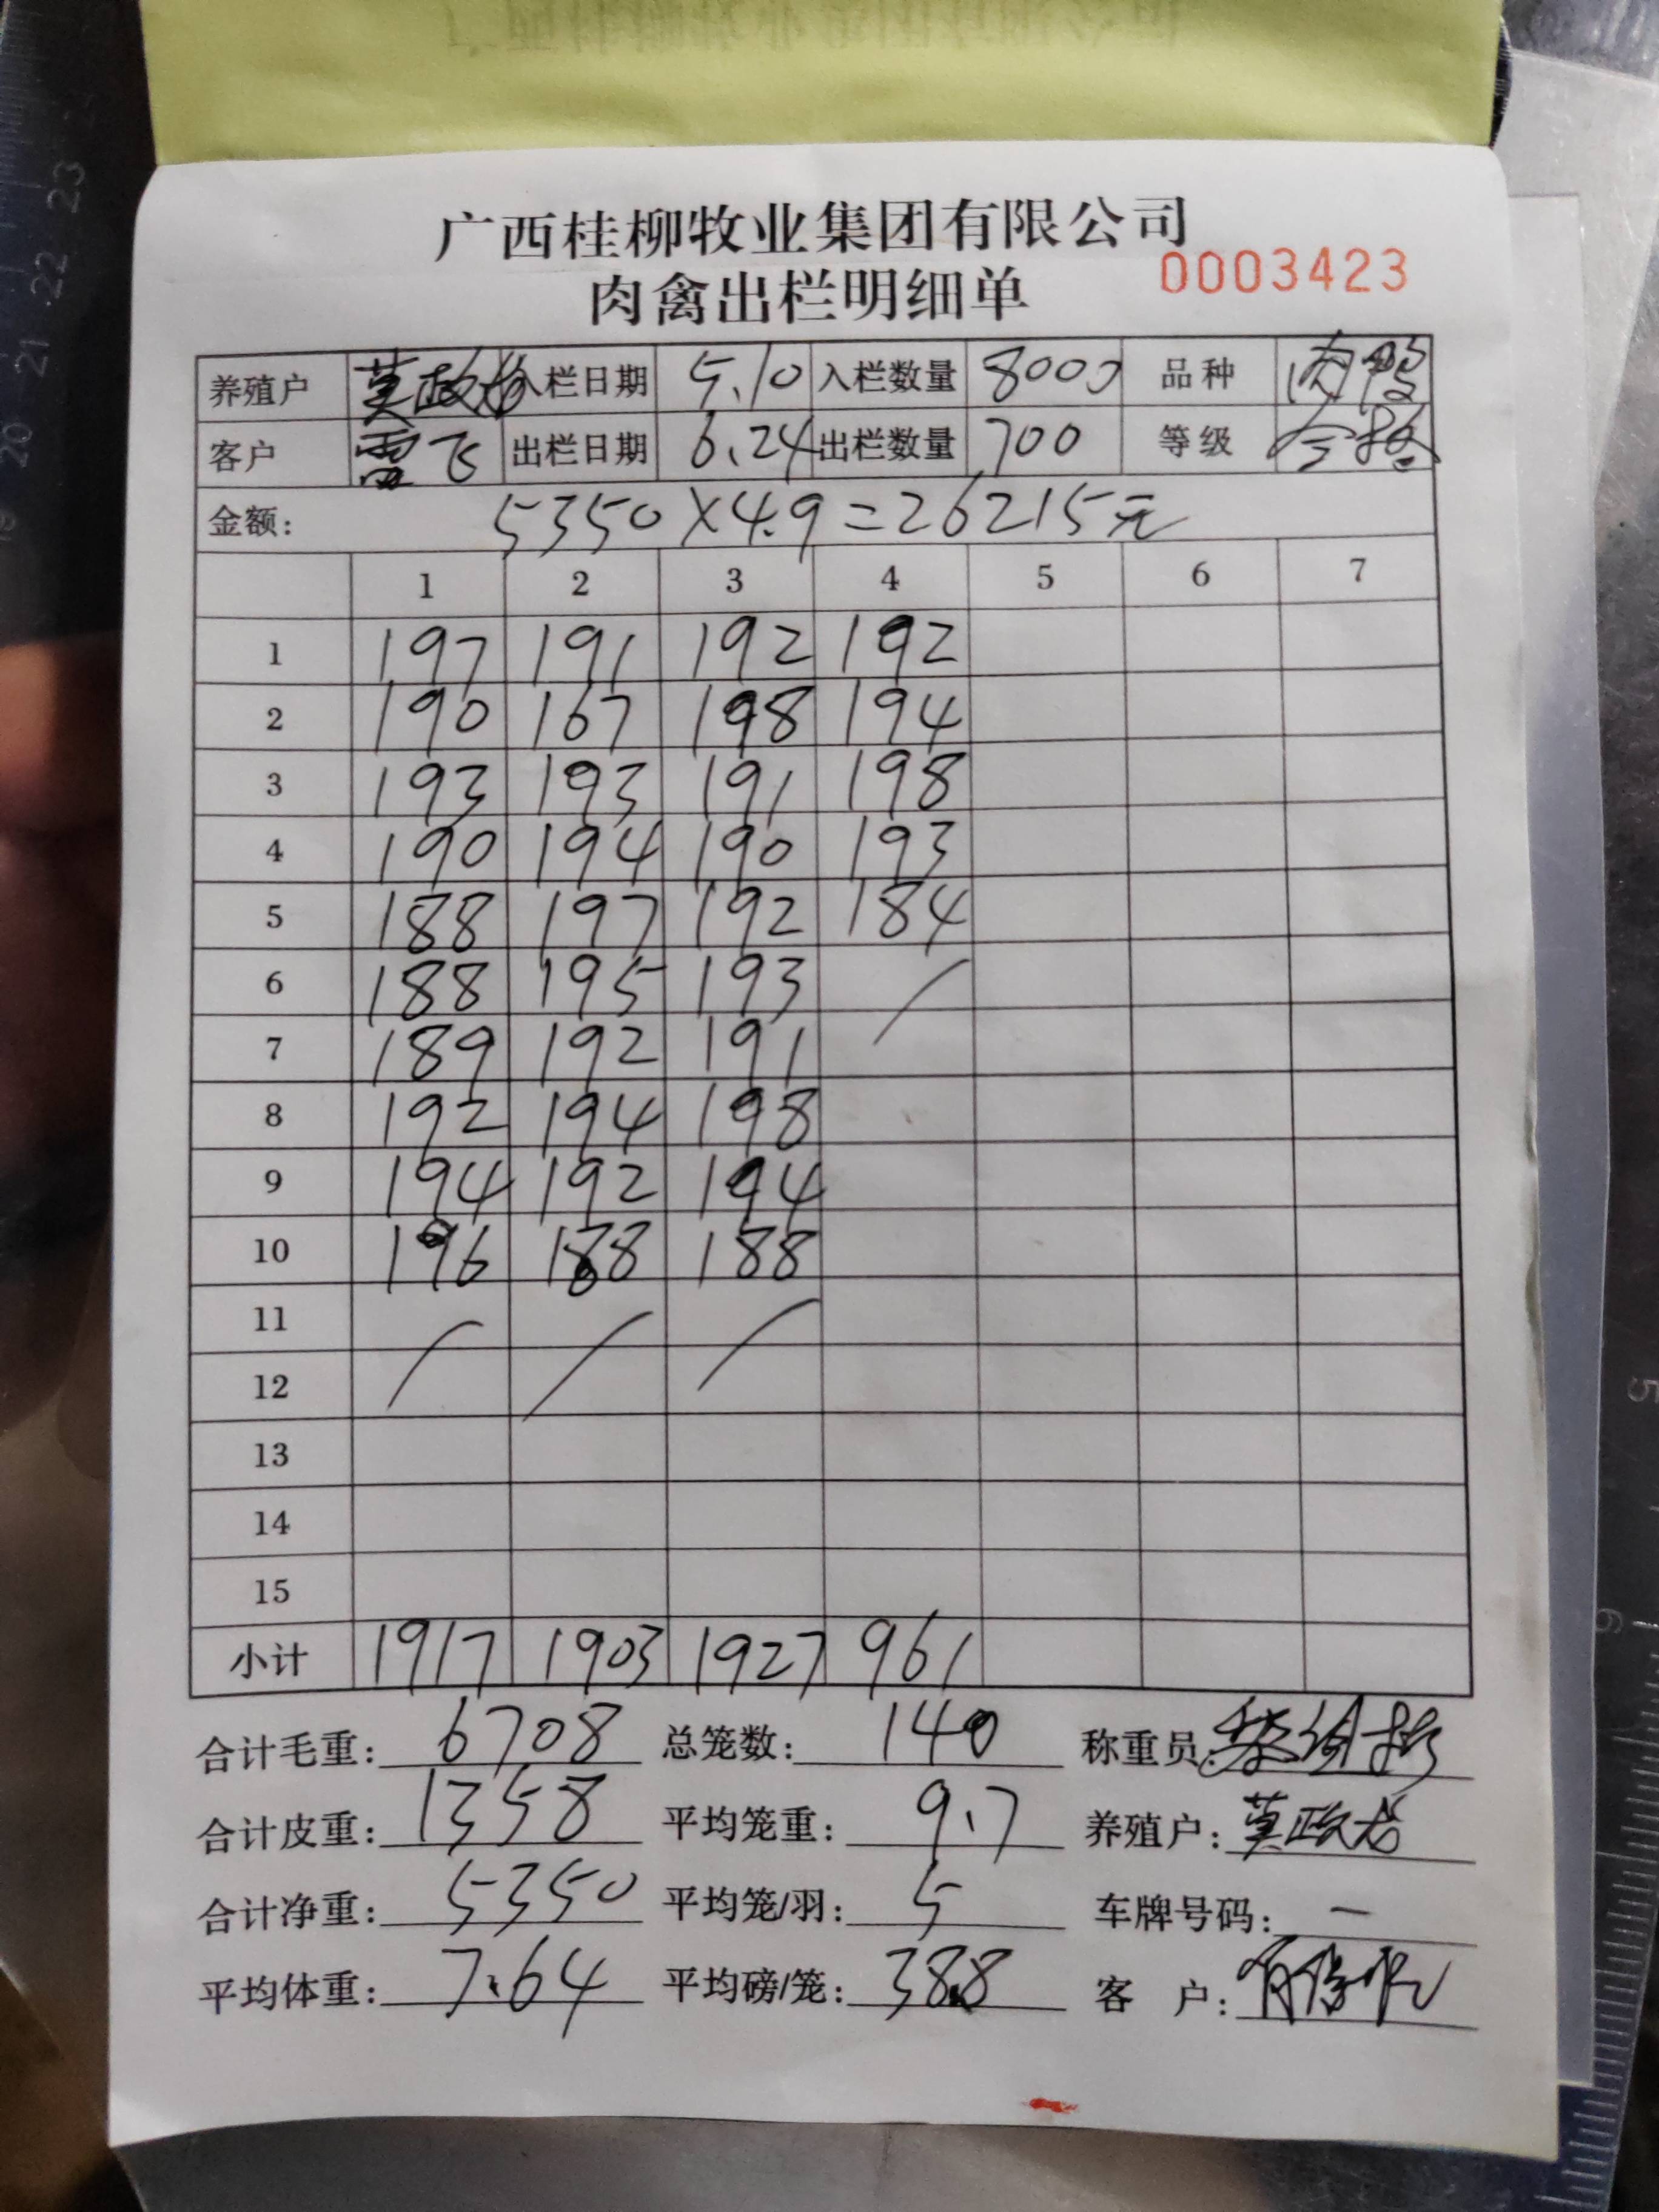 广西桂柳牧业集团有限公司
肉禽出栏明细单 0003423
养殖户 莫政龙 入栏日期 5.10 入栏数量 8000 品种 肉鸭
客户 雷飞 出栏日期 6.24 出栏数量 700 等级 合格
金额: 5350×4.9=26215元
1 2 3 4 5 6 7
1 197 191 192 192
2 190 167 198 194
3 193 193 191 198
4 190 194 190 193
5 188 197 192 184
6 188 195 193 /
7 189 192 191
8 192 194 198
9 194 192 194
10 196 188 188
11 / / /
12
13
14
15
小计 1917 1903 1927 961
合计毛重: 6708 总笼数: 140 称重员:
合计皮重: 1358 平均笼重: 9.7 养殖户: 莫政龙
合计净重: 5350 平均笼/羽: 5 车牌号码: —
平均体重: 7.64 平均磅/笼: 38.8 客 户: